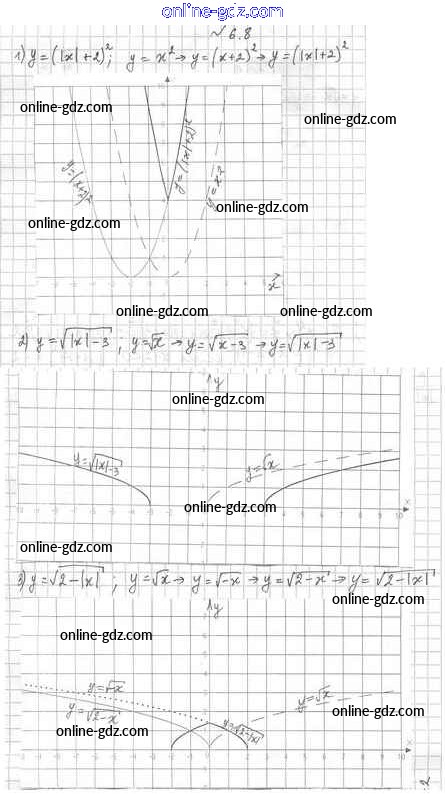 online-gdz.com
№ 6.8
1) y=(|x|+2)²; y = x² → y=(x+2)² → y=(|x|+2)²
online-gdz.com
online-gdz.com
y=(x+2)²
y=(|x|+2)²
y=x²
online-gdz.com
online-gdz.com
x
online-gdz.com
online-gdz.com
2) y=√|x|-3 ; y=√x → y=√x-3 → y=√|x|-3
y
online-gdz.com
y=√|x|-3
y=√x
online-gdz.com
x
10
online-gdz.com
3) y=√2-|x| ; y=√x → y=√-x → y=√2-x → y=√2-|x|
online-gdz.com
y
online-gdz.com
y=√-x
y=√x
y=√2-x
y=√2-|x|
online-gdz.com
online-gdz.com
x
10